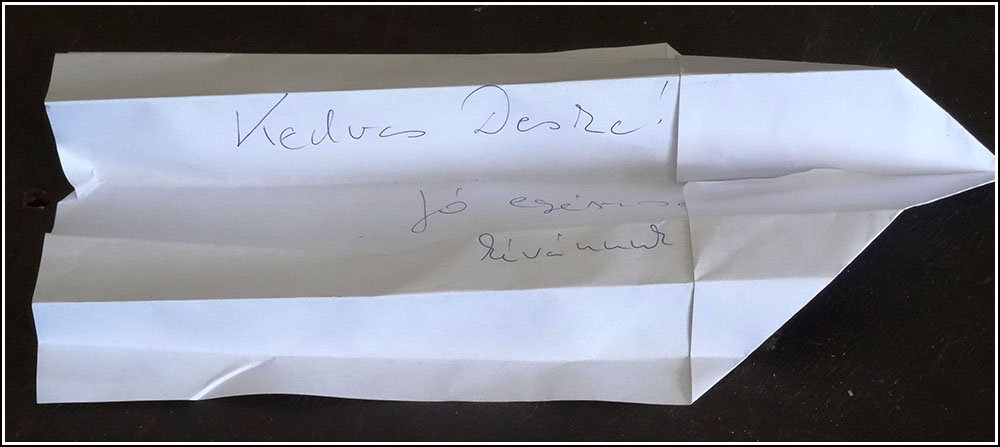 Kedves Deske!
Jó egészs
kívánunk